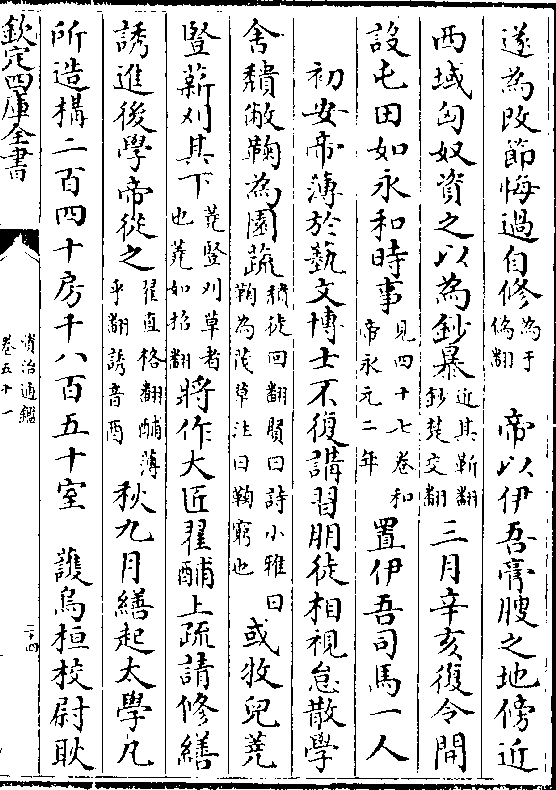 遂為改節悔過自修為于偽翻　帝以伊吾膏腴之地傍近
西域匈奴資之以為鈔暴近其靳翻鈔楚交翻三月辛亥復令開
設屯田如永和時事見四十七卷和帝永元二年置伊吾司馬一人
初安帝薄於藝文博士不復講習朋徒相視怠散學
舍穨敝鞠為園蔬穨徒回翻賢曰詩小雅曰鞠為茂草注曰鞠窮也或牧兒蕘
豎薪刈其下蕘豎刈草者也蕘如招翻將作大匠翟酺上疏請修繕
誘進後學帝從之翟直格翻酺薄乎翻誘音酉秋九月繕起太學凡
所造構二百四十房千八百五十室　護烏桓校尉耿
欽定四庫全書
資治通鑑
卷五十一
二十四